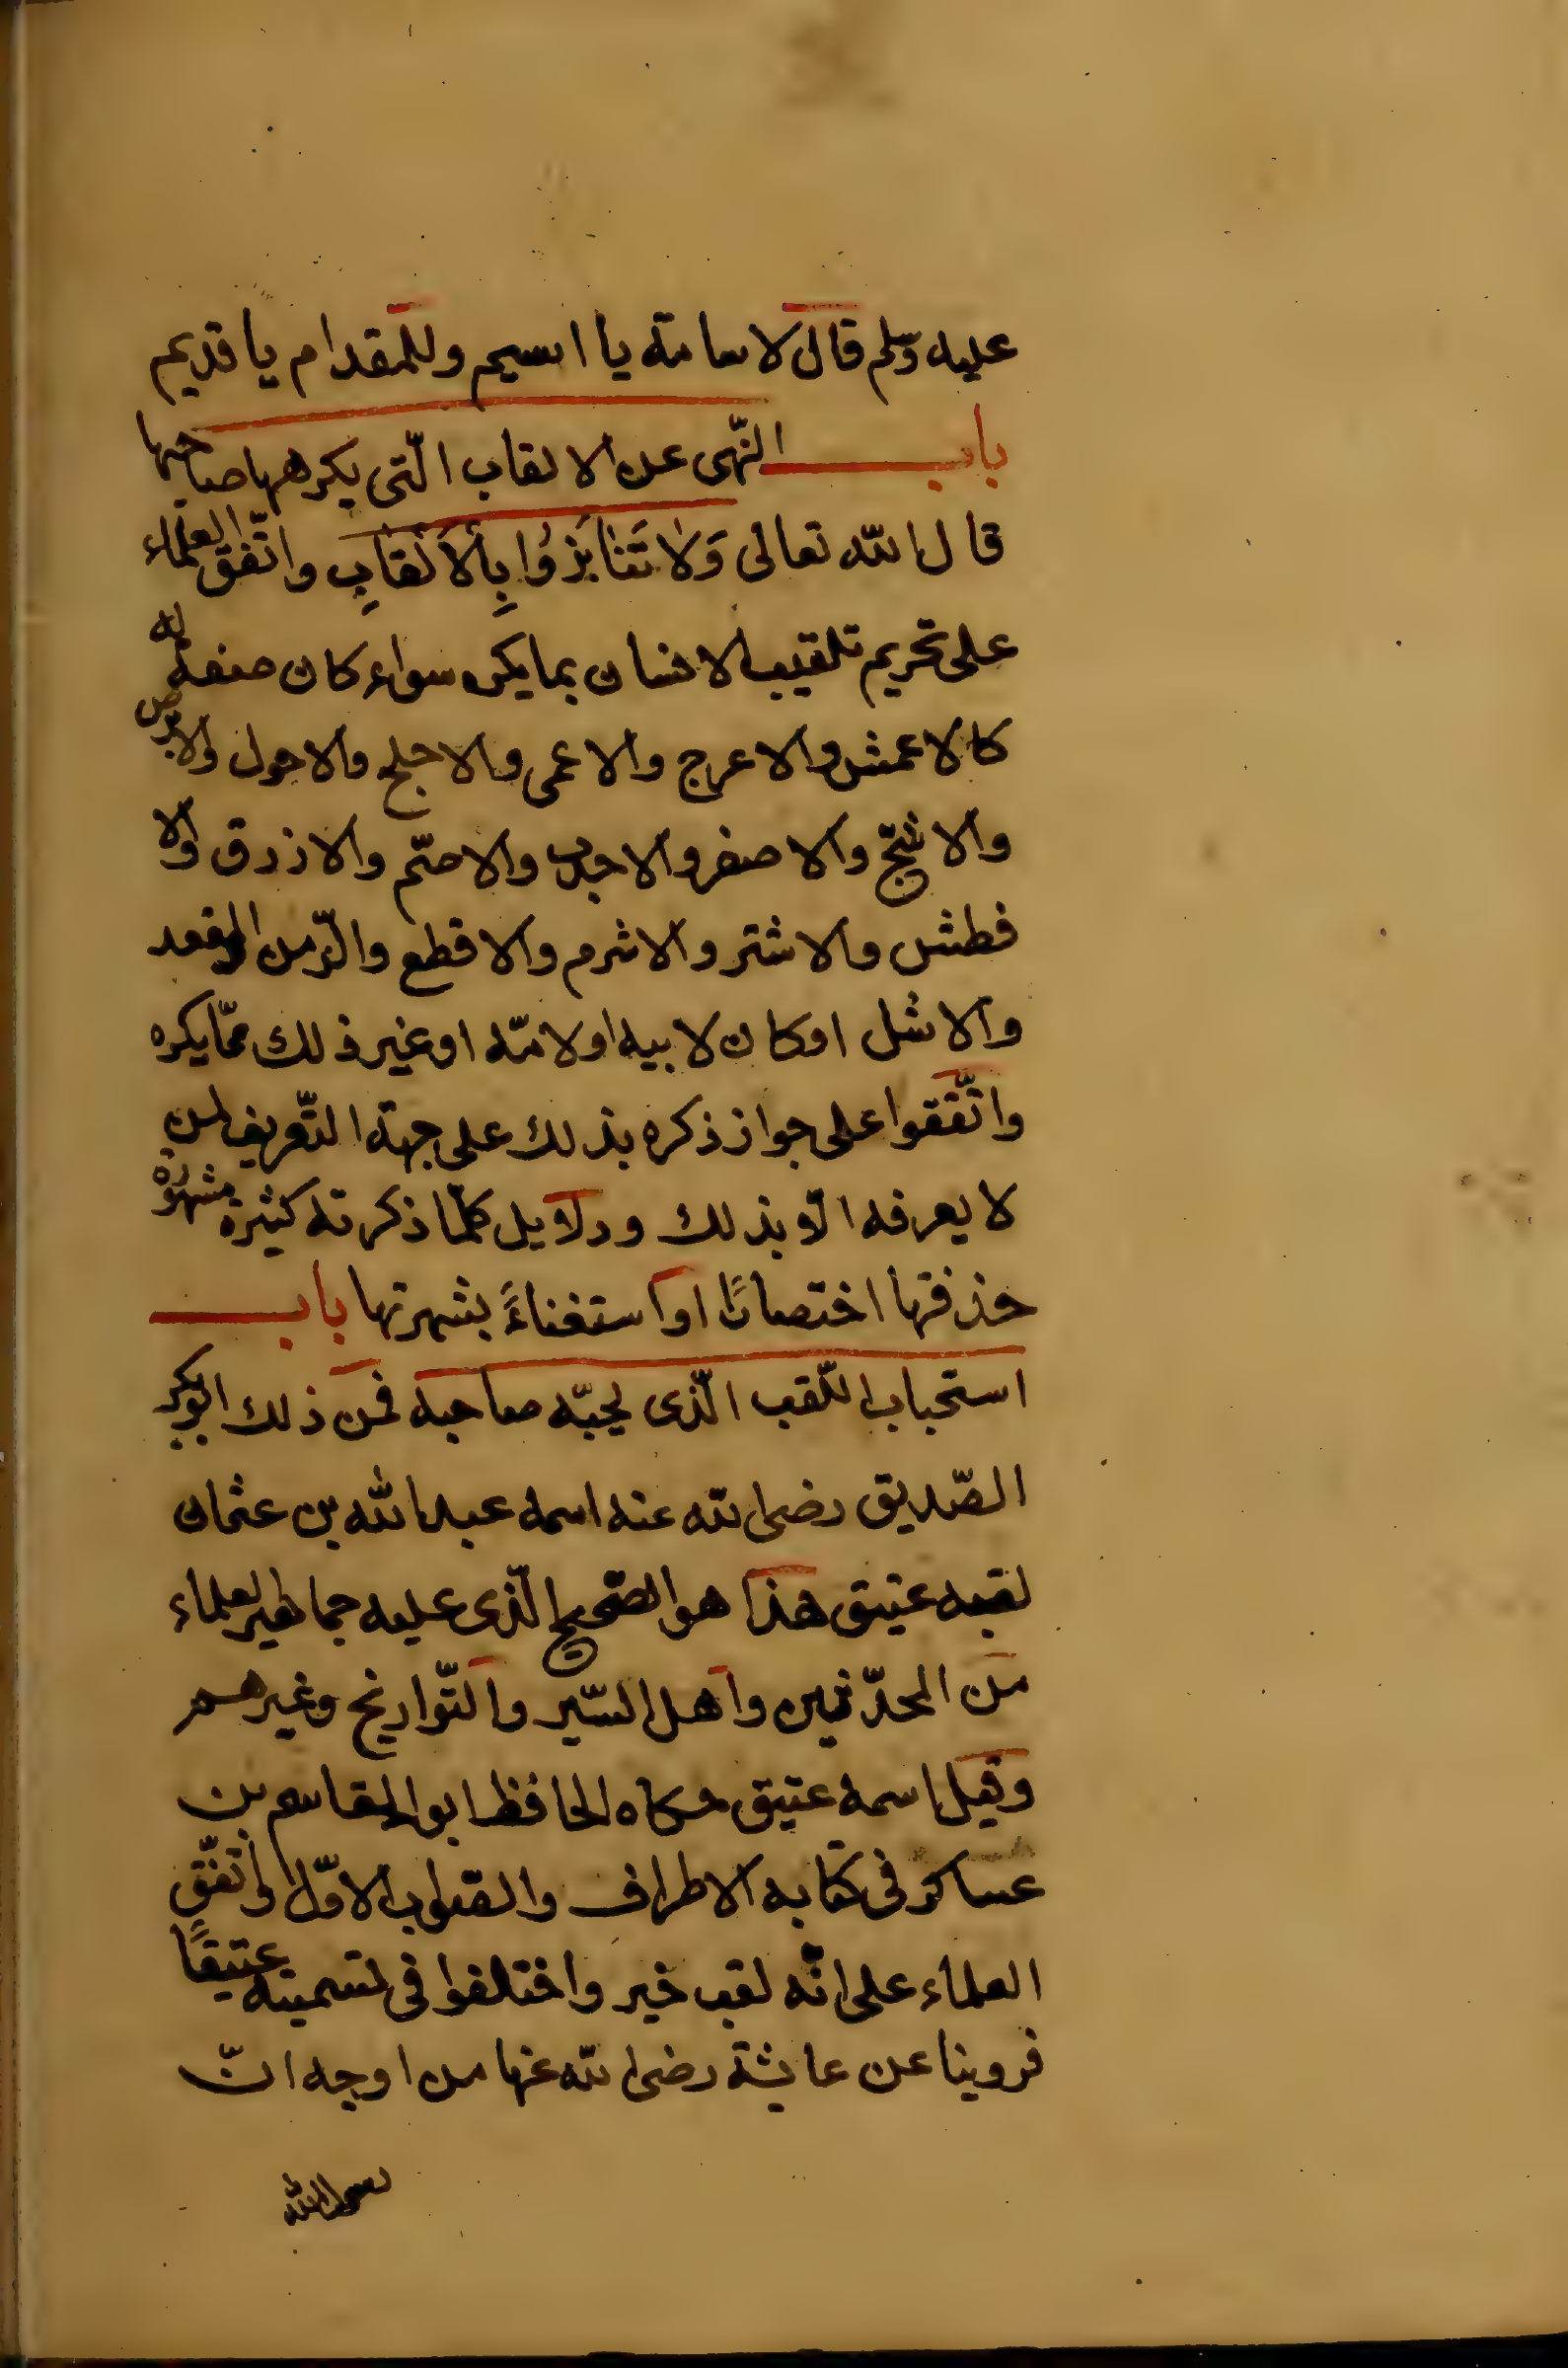 عليه وسلم قال لاسامة يا اسيم وللمقدام يا قديم
باب النّهى عن الالقاب الّتى يكرهها صاحبها
قال الله تعالى وَلَا تَنَابَزُوا بِالْأَلْقَابِ واتّفق العلماء
على تحريم تلقيب الانسان بما يكره سواء كان صفة له
كالاعمش والاعرج والاعمى والاجلح والاحول والابرص
والاشجّ والاصفر والاحدب والاصمّ والازرق والا
فطش والاشتر والاثرم والاقطع والزّمن المقعد
والاشل او كان لابيه او لامّه او غير ذلك ممّا يكره
واتّفقوا على جواز ذكره بذلك على جهة التّعريف لمن
لا يعرفه الّا بذلك ودلايل كلّما ذكرته كثيرة مشهورة
حذفتها اختصارًا او استغناءً بشهرتها باب
استحباب اللّقب الّذى يحبّه صاحبه فمن ذلك ابو بكر
الصّديق رضى الله عنه اسمه عبد الله بن عثمان
لقبه عتيق هذا هو الصّحيح الّذى عليه جماهير العلماء
من المحدّثين واهل السّير والتّواريخ وغيرهم
وقيل اسمه عتيق حكاه الحافظ ابو القاسم بن
عساكر فى كتابه الاطراف والصّواب الاوّل واتّفق
العلماء على انّه لقب خير واختلفوا فى تسميته عتيقًا
فروينا عن عايشة رضى الله عنها من اوجه انّ
رسول الله